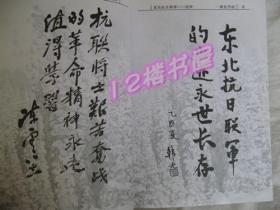 抗联将士艰苦奋战
的革命精神永远
值得学习
陈云
东北抗日联军
的迹永世长存
夏 韩光
12楼书屋